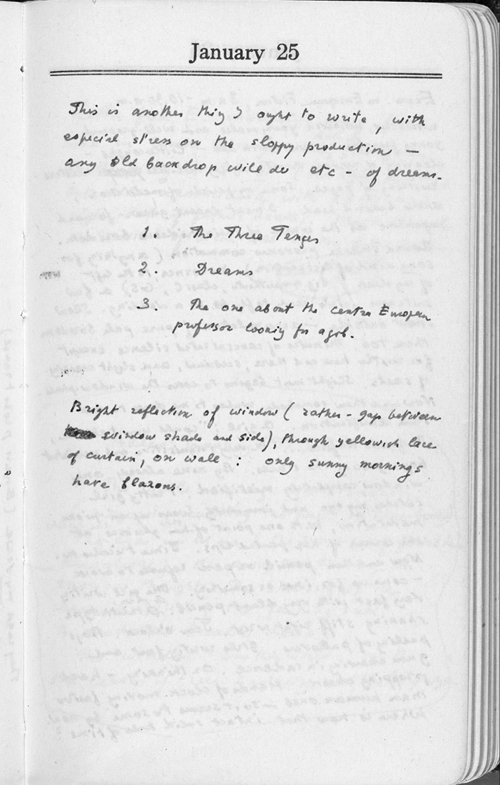 January 25
This is another thing I ought to write, with
especial stress on the sloppy production —
any old backdrop will do etc - of dreams.
1. The Three Tenses
2. Dreams
3. The one about the central European
professor looking for a job.
Bright reflection of window (rather - gap between
window shade and side), through yellowish lace
of curtain, on wall : only sunny mornings
have blazons.